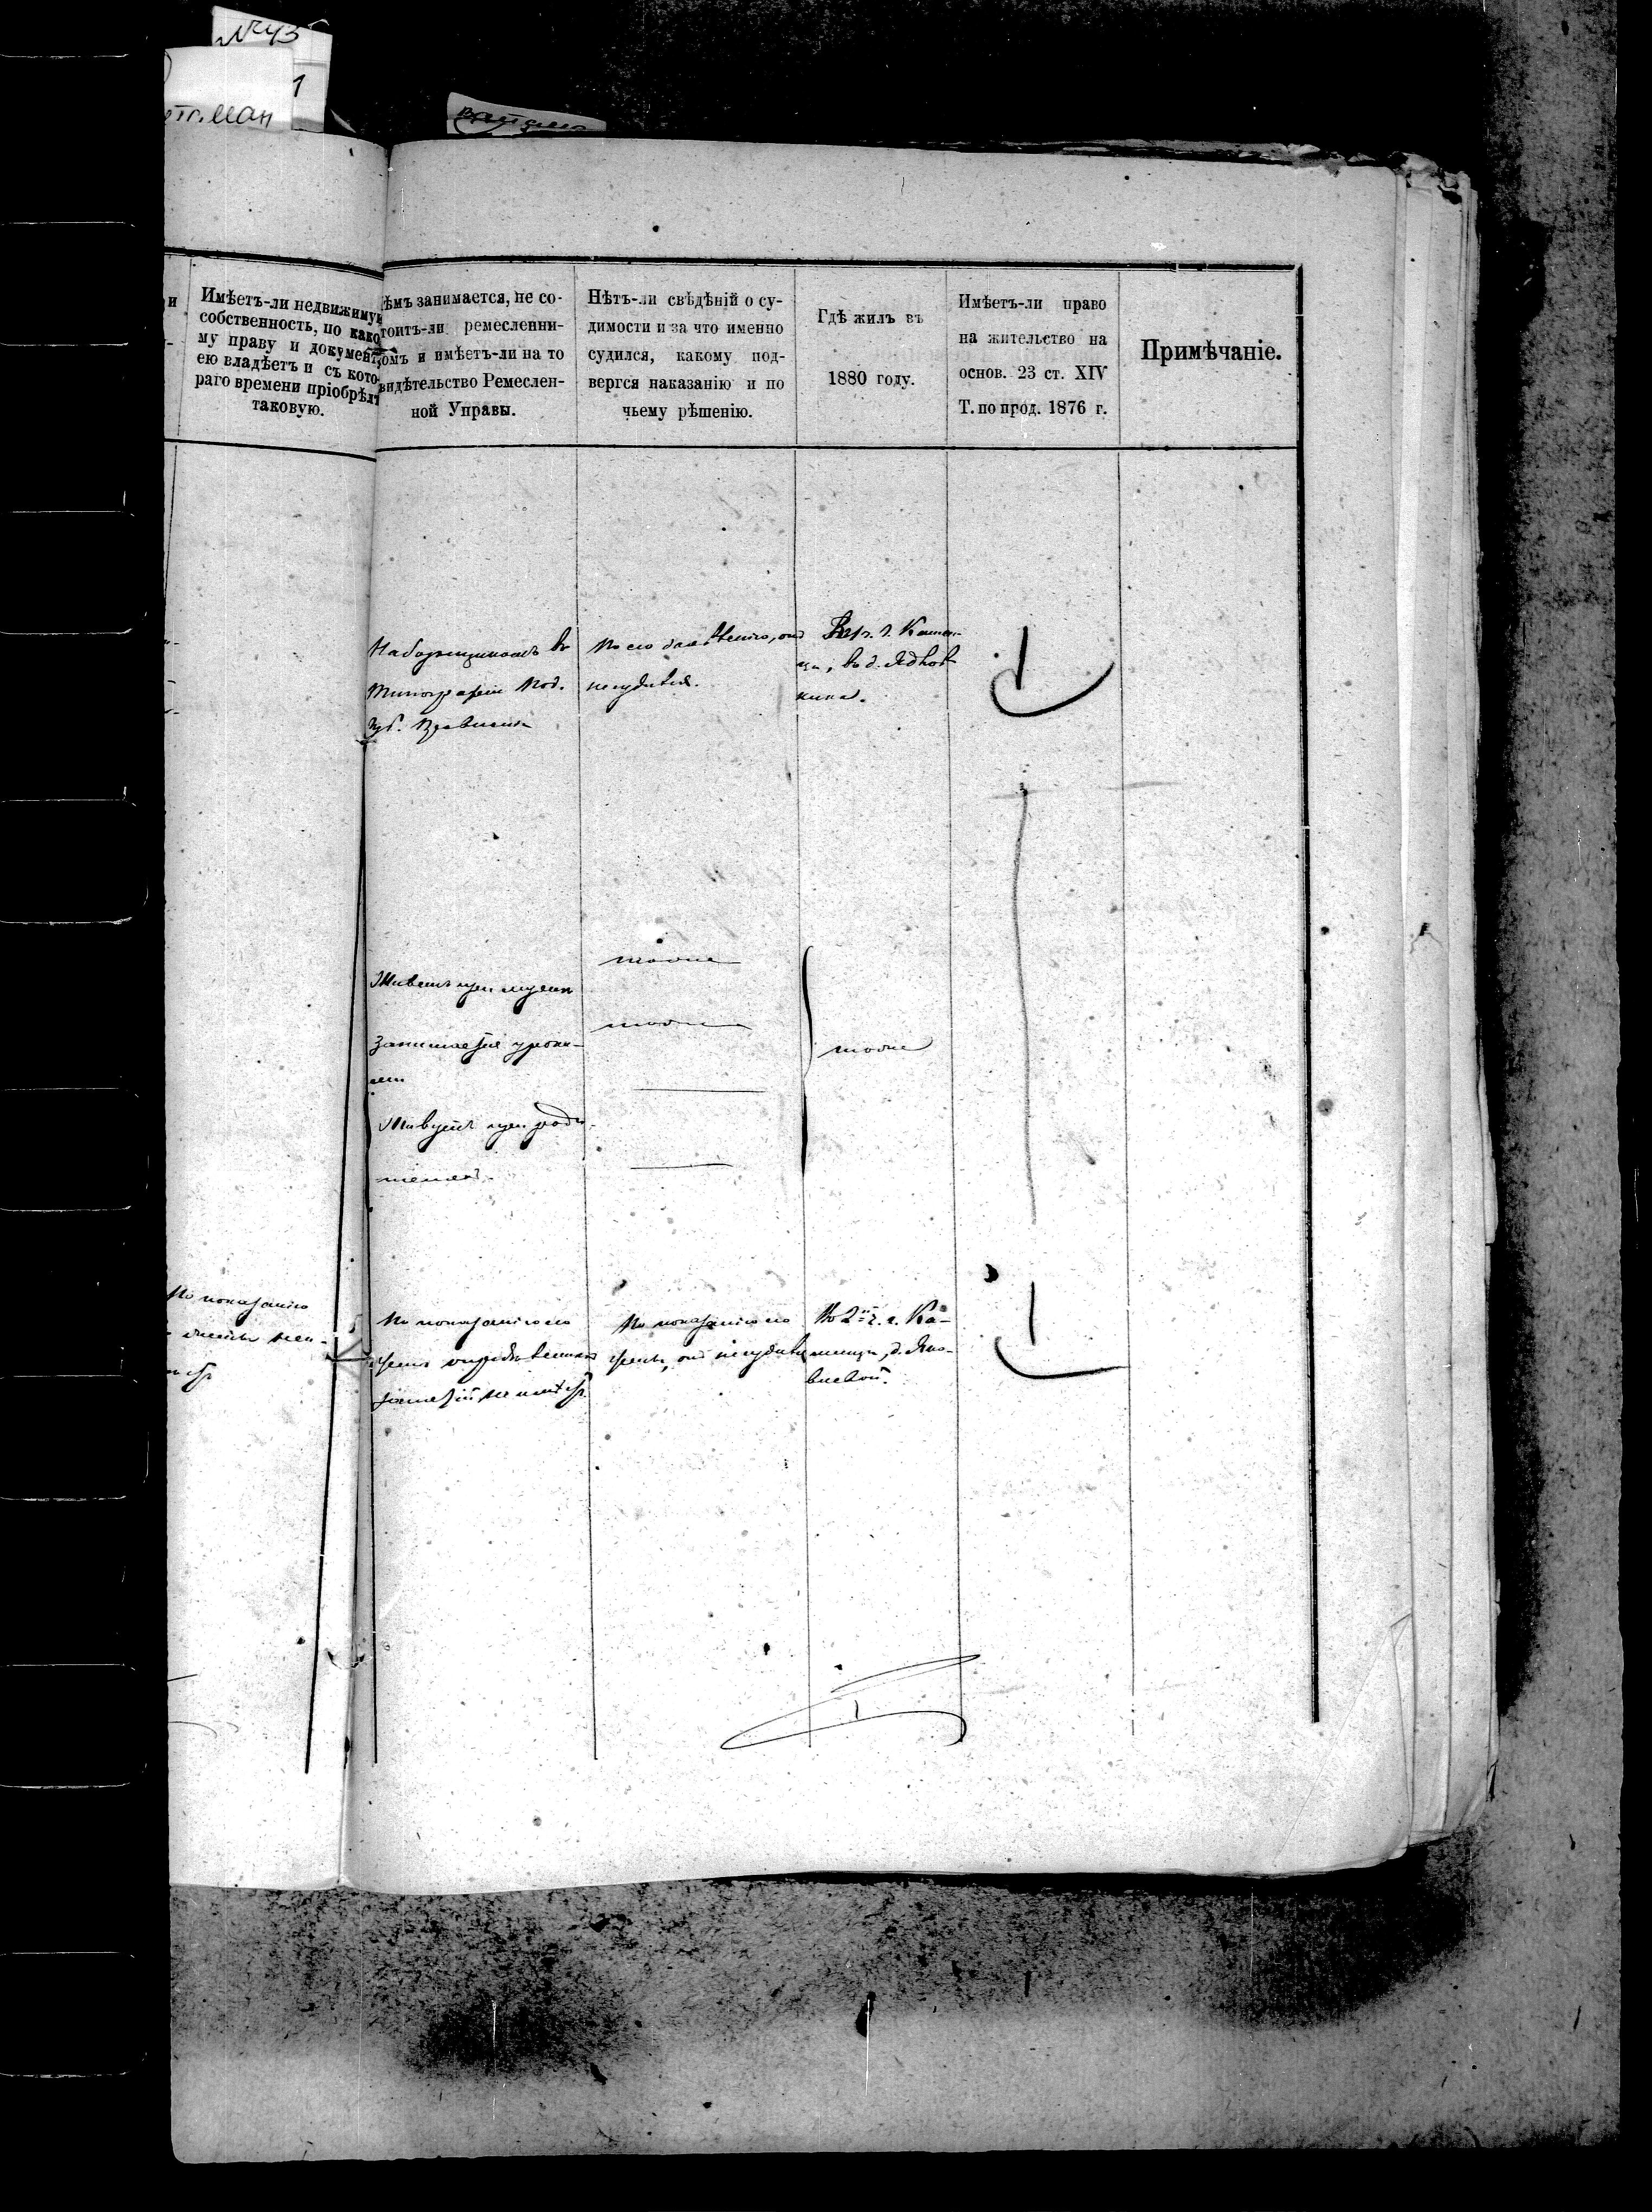 №43
1
таман
и
Имѣетъ-ли недвижимую
собственность, по како
му праву и документ
ею владѣетъ и съ кото-
раго времени пріобрѣлъ
таковую.
ѣмъ занимается, не со-
тоитъ-ли ремесленни-
омъ и имѣетъ-ли на то
видѣтельство Ремеслен-
ной Управы.
Нѣтъ-ли свѣдѣній о су-
димости и за что именно
судился, какому под-
вергся наказанію и по
чьему рѣшенію.
Гдѣ жилъ въ
1880 году.
Имѣетъ-ли право
на жительство на
основ. 23 ст. XIV
Т. по прод. 1876 г.
Примѣчаніе.
Наборщикомъ въ
Типографіи Под.
Губ. Правленія
По его заявленію, онъ
несудился.
г. Камен-
ца, въ д.
Живетъ при мужѣ
Занимается урока-
ми
Живутъ при роди-
теляхъ
тоже
тоже
тоже
По показанію
По показанію его
опредѣленныхъ
занятій не имѣетъ
По показанію его
онъ несудился
Во 2й ч. г. Ка-
менца, д. Яно-
вской.